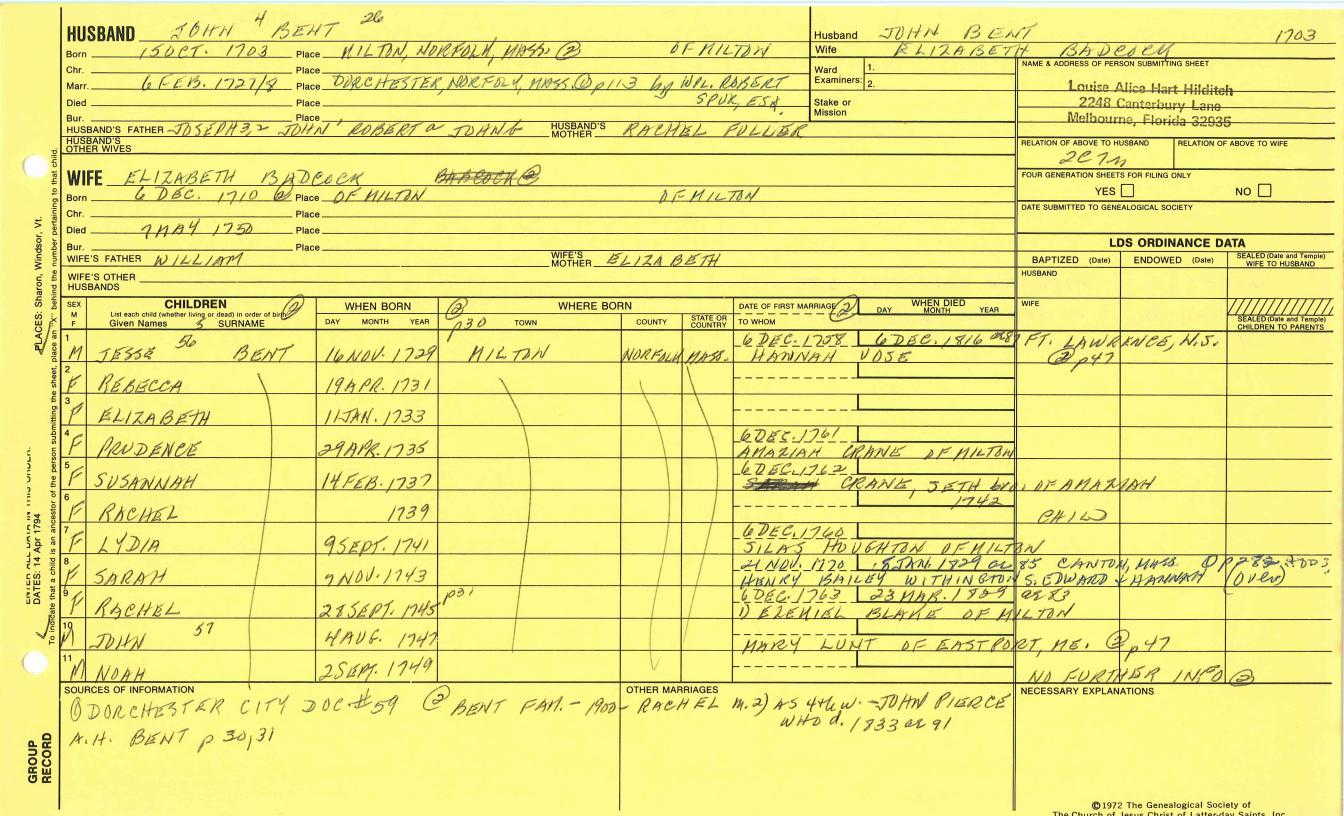 HUSBAND JOHN 4 BENT 26
Born 15 OCT. 1703 Place MILTON, NORFOLK, MASS. ② OF MILTON
Chr. Place
Marr. 6 FEB. 1727/8 Place DORCHESTER, NORFOLK, MASS. ① p113 by WM. ROBERT
SPUR, ESQ.
Died Place
Bur. Place
HUSBAND'S FATHER JOSEPH 3,2 JOHN ROBERT JOHN HUSBAND'S MOTHER RACHEL FULLER
HUSBAND'S OTHER WIVES
WIFE ELIZABETH BADCOCK
Born 6 DEC. 1710 ② Place OF MILTON OF MILTON
Chr. Place
Died 7 MAY 1750 Place
Bur. Place
WIFE'S FATHER WILLIAM WIFE'S MOTHER ELIZABETH
WIFE'S OTHER HUSBANDS
Husband JOHN BENT 1703
Wife ELIZABETH BADCOCK
Ward Examiners: 1.
2.
Stake or Mission
NAME & ADDRESS OF PERSON SUBMITTING SHEET
Louise Alice Hart Hilditch
2248 Canterbury Lane
Melbourne, Florida 32935
RELATION OF ABOVE TO HUSBAND RELATION OF ABOVE TO WIFE
2C7n
FOUR GENERATION SHEETS FOR FILING ONLY
YES NO
DATE SUBMITTED TO GENEALOGICAL SOCIETY
LDS ORDINANCE DATA
BAPTIZED (Date) ENDOWED (Date) SEALED (Date and Temple) WIFE TO HUSBAND
HUSBAND
WIFE
SEALED (Date and Temple) CHILDREN TO PARENTS
SEX M F CHILDREN ② WHEN BORN ② WHERE BORN DATE OF FIRST MARRIAGE ② WHEN DIED
List each child (whether living or dead) in order of birth
Given Names 5 SURNAME DAY MONTH YEAR p30 TOWN COUNTY STATE OR COUNTRY TO WHOM DAY MONTH YEAR
1 M JESSE 56 BENT 16 NOV. 1729 MILTON NORFOLK MASS. 6 DEC. 1758 6 DEC. 1816 FT. LAWRENCE, N.S.
HANNAH VOSE ② p47
2 F REBECCA 19 APR. 1731
3 F ELIZABETH 11 JAN. 1733
4 F PRUDENCE 29 APR. 1735 6 DEC. 1761
AMAZIAH CRANE OF MILTON
5 F SUSANNAH 14 FEB. 1737 6 DEC. 1762
CRANE, SETH bro. OF AMAZIAH
6 F RACHEL 1739 1742 CHILD
7 F LYDIA 9 SEPT. 1741 6 DEC. 1760
SILAS HOUGHTON OF MILTON
8 F SARAH 9 NOV. 1743 21 NOV. 1770 5 JAN. 1829 ae 85 CANTON, MASS. ① p282
HENRY BAILEY WITHINGTON S. EDWARD + HANNAH (over)
9 F RACHEL 28 SEPT. 1745 p31 6 DEC. 1763 23 MAR. 1829 ae 83
1) EZEKIEL BLAKE OF MILTON
10 M JOHN 57 4 AUG. 1747
MARY LUNT OF EASTPORT, ME. ② p47
11 M NOAH 2 SEPT. 1749 NO FURTHER INFO ②
SOURCES OF INFORMATION
① DORCHESTER CITY DOC #59 ② BENT FAM. - 1900 -
A.H. BENT p 30,31
OTHER MARRIAGES
RACHEL m. 2) AS 4th w. - JOHN PIERCE
WHO d. 1833 ae 91
NECESSARY EXPLANATIONS
©1972 The Genealogical Society of
The Church of Jesus Christ of Latter-day Saints, Inc.
PLACES: Sharon, Windsor, Vt.
ENTER ALL DATA IN THIS ORDER:
DATES: 14 Apr 1794
To indicate that a child is an ancestor of the person submitting the sheet, place an "X" behind the number pertaining to that child.
GROUP
RECORD